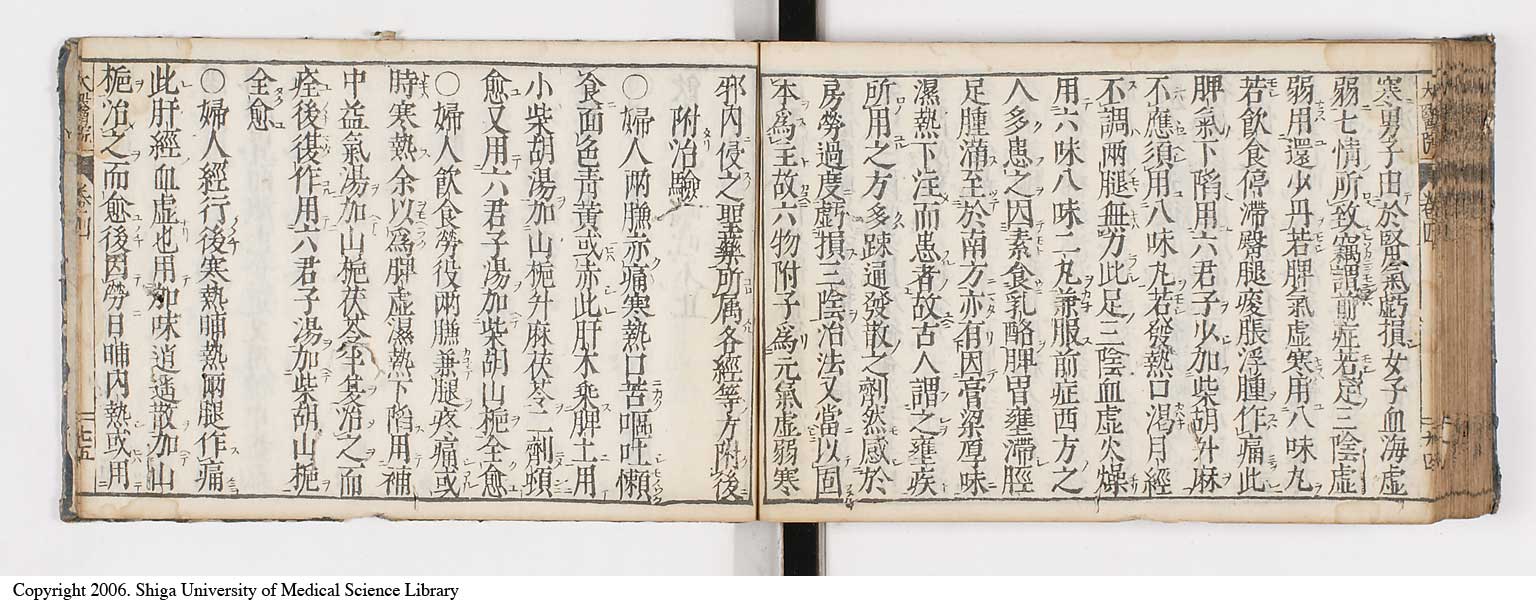 寒男子由於腎氣虧損女子血海虛
弱七情所致竊謂前症若足三陰虛
弱用還少丹若脾氣虛寒用八味丸
若飲食停滯臀腿痠脹浮腫作痛此
脾氣下陷用六君子少加柴胡升麻
不應須用八味丸若發熱口渴月經
不調兩腿無力此足三陰血虛火燥
用六味八味二丸兼服前症西方之
人多患之因素食乳酪脾胃壅滯脛
足腫滿至於南方亦有因膏粱厚味
濕熱下注而患者故古人謂之壅疾
所用之方多踈通發散之劑然感於
房勞過度虧損三陰治法又當以固
本為主故六物附子為元氣虛弱寒
邪內侵之聖藥所属各經等方附後
附治驗
○婦人兩臁亦痛寒熱口苦嘔吐懶
食面色青黃或赤此肝木乘脾土用
小柴胡湯加山梔升麻茯苓二劑頓
愈又用六君子湯加柴胡山梔全愈
○婦人飲食勞役兩臁兼腿疼痛或
時寒熱余以為脾虛濕熱下陷用補
中益氣湯加山梔茯苓半夏治之而
痊後復作用六君子湯加柴胡山梔
全愈
○婦人經行後寒熱晡熱兩腿作痛
此肝經血虛也用加味逍遙散加山
梔治之而愈後因勞日晡內熱或用
卷四
七五
Copyright 2006. Shiga University of Medical Science Library